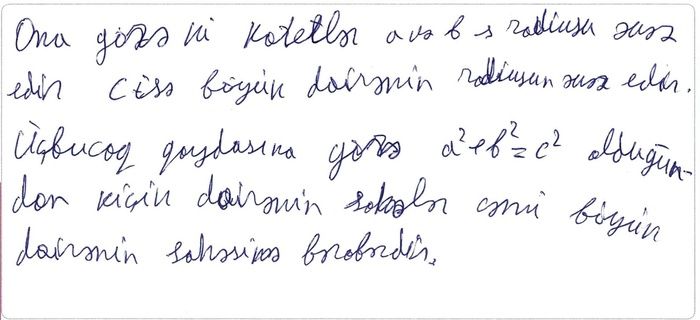 Ona görə ki katetlər a və b s radiusu əvəz
edir C isə böyük dairənin radiusun əvəz edir.
Üçbucaq qaydasına görə a²+b²=c² olduğun-
dan kiçik dairənin sahələr cəmi böyük
dairənin sahəsinə bərabərdir.